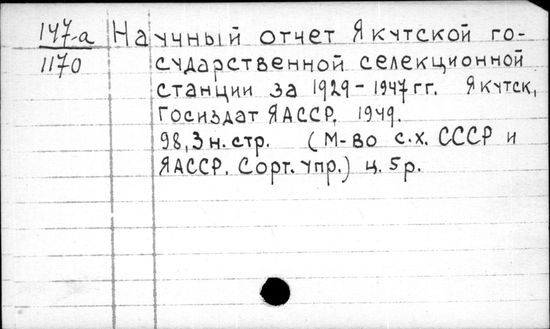 147-а
1170
Научный отчет Якутской го-
сударственной селекционной
станции за 1929-1947гг. Якутск,
Госиздат ЯАССР, 1949.
98,3н.стр. (М-во с.х. СССР и
ЯАССР. Сорт.упр.) ц. 5р.